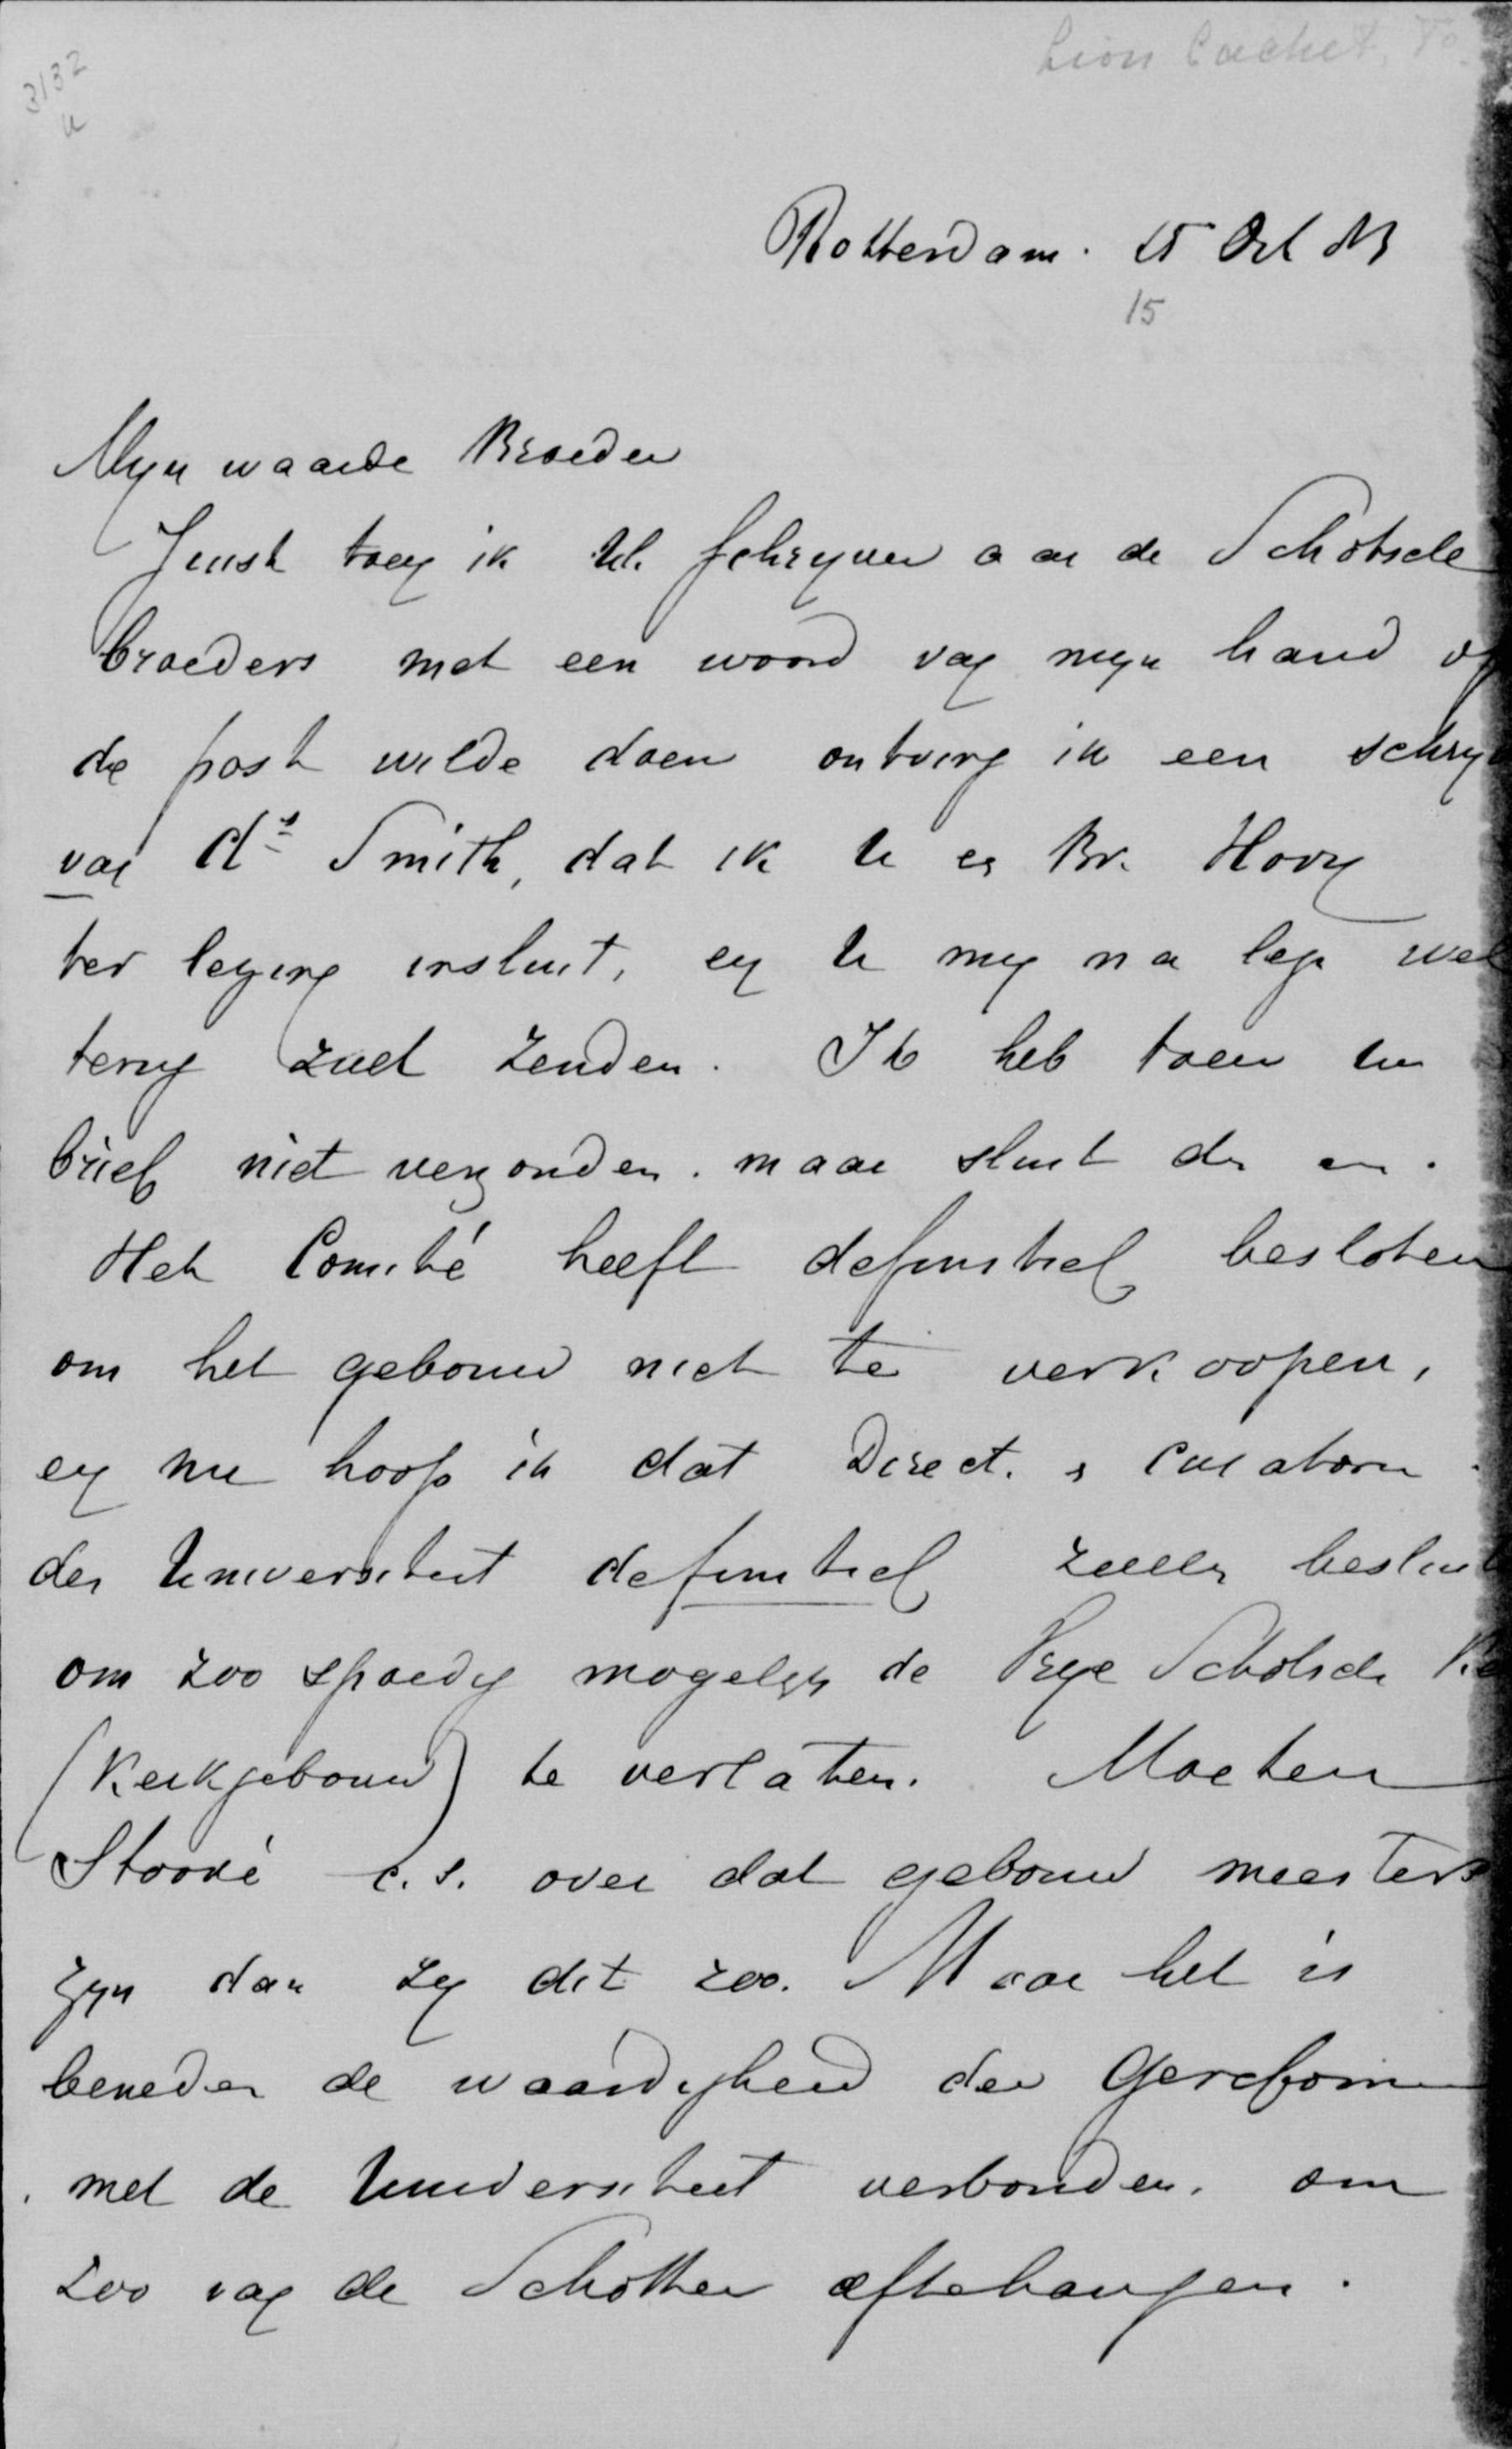 Lion Cachet, F
3132
Rotterdam. 15 Oct 83
15
Myn waarde Broeder
Juist toen ik Uw schryven aan de Schotsche
broeders met een woord van myn hand op
de post wilde doen ontving ik een schryv
van ds Smith, dat ik U en Br. Hovy
ter lezing insluit, en U my na lezen wel
terug zult zenden. Ik heb toen uw
brief niet verzonden. maar sluit die in.
Het Comité heeft definitief besloten
om het gebouw niet te verkoopen,
en nu hoop ik dat Direct. & Curatoren
der Universiteit definitief zullen besluit
om zoo spoedig mogelyk de Vrye Schotsche Ke
(Kerkgebouw) te verlaten. Moeten
Stoové c.s. over dat gebouw meesters
zyn dan zy dit zoo. Maar het is
beneden de waardigheid der Gereform
met de Universiteit verbonden, om
zoo van de Schotten aftehangen.